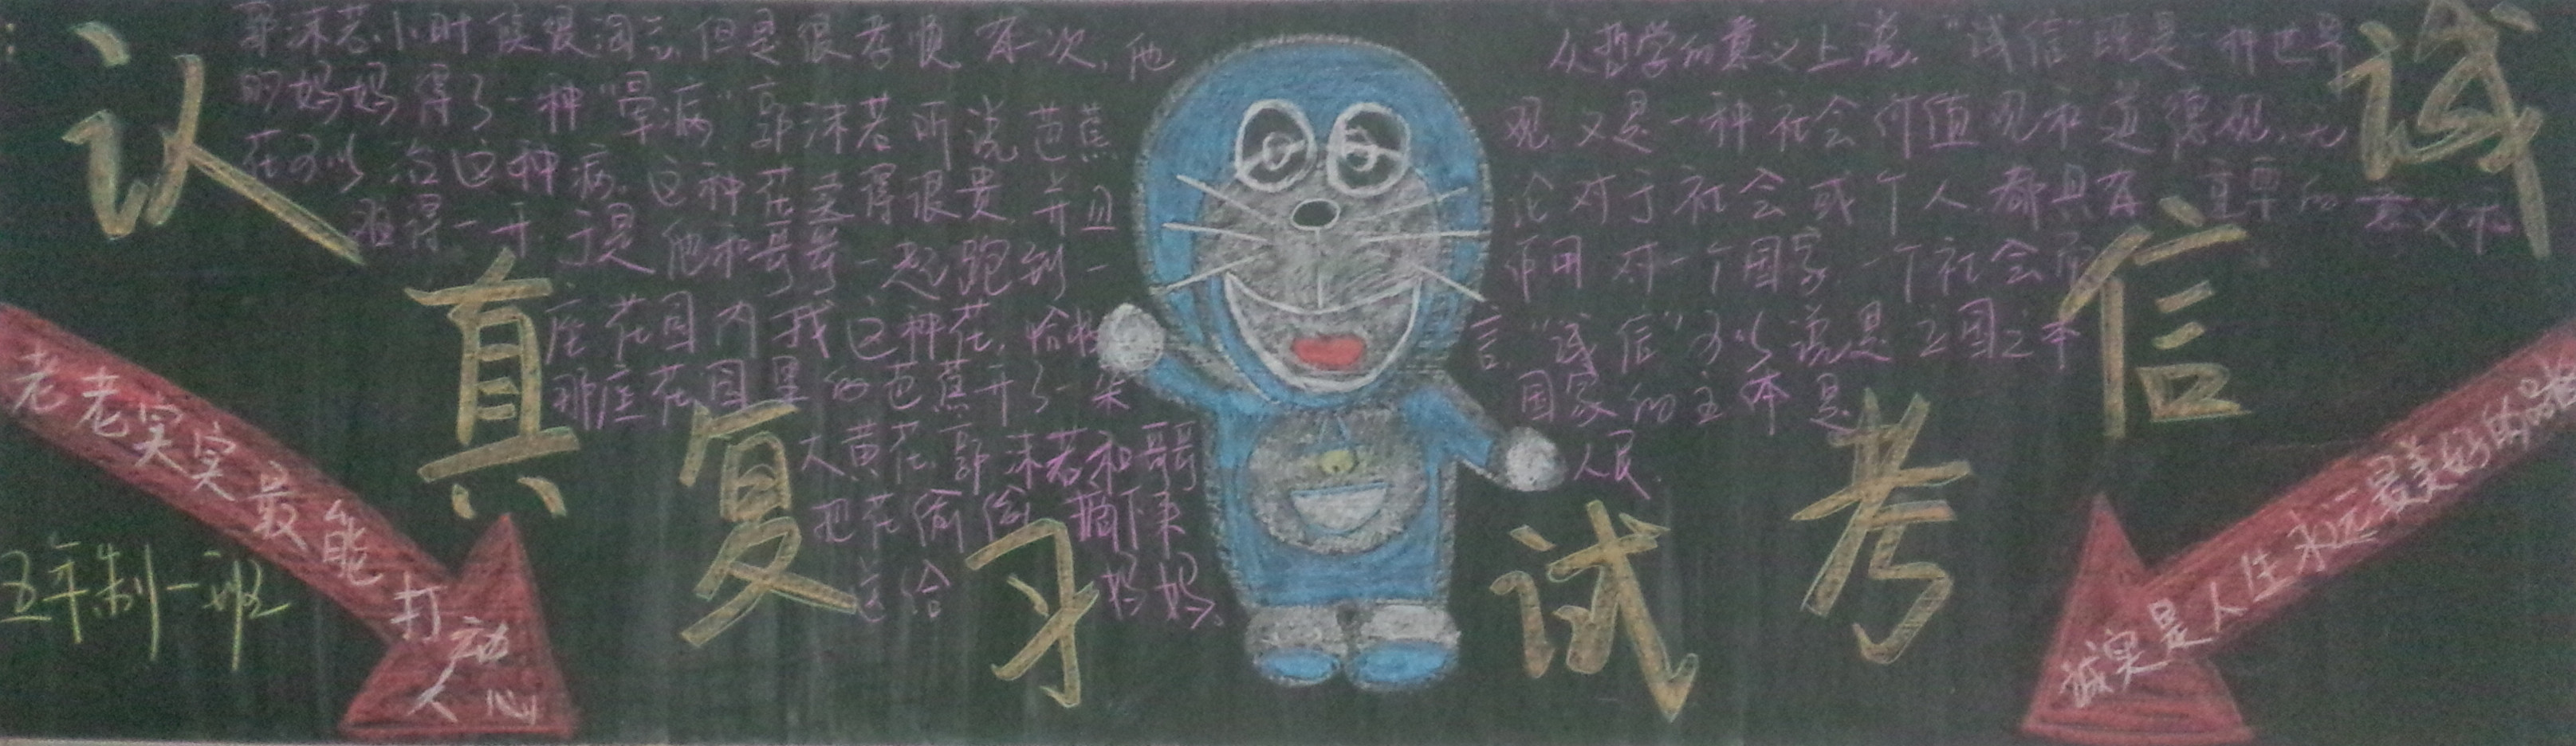 认真复习
诚信考试
郭沫若小时候很淘气但是很孝顺.有次,他
的妈妈得了一种"晕病"郭沫若听说芭蕉
花可以治这种病.这种花卖得很贵,并且
难得一开.于是他和哥哥一起跑到一
座花园内找这种花.恰好
那座花园里的芭蕉开了一朵
大黄花.郭沫若和哥哥
把花偷偷摘下来
送给妈妈。
从哲学的意义上说,"诚信"既是一种世界
观,又是一种社会价值观和道德观,无
论对于社会或个人,都具有重要的意义和
作用.对一个国家,一个社会而
言,"诚信"可以说是立国之本
国家的主体是
人民.
老老实实最能打动人心
五年制一班
诚实是人生永远最美好的品格